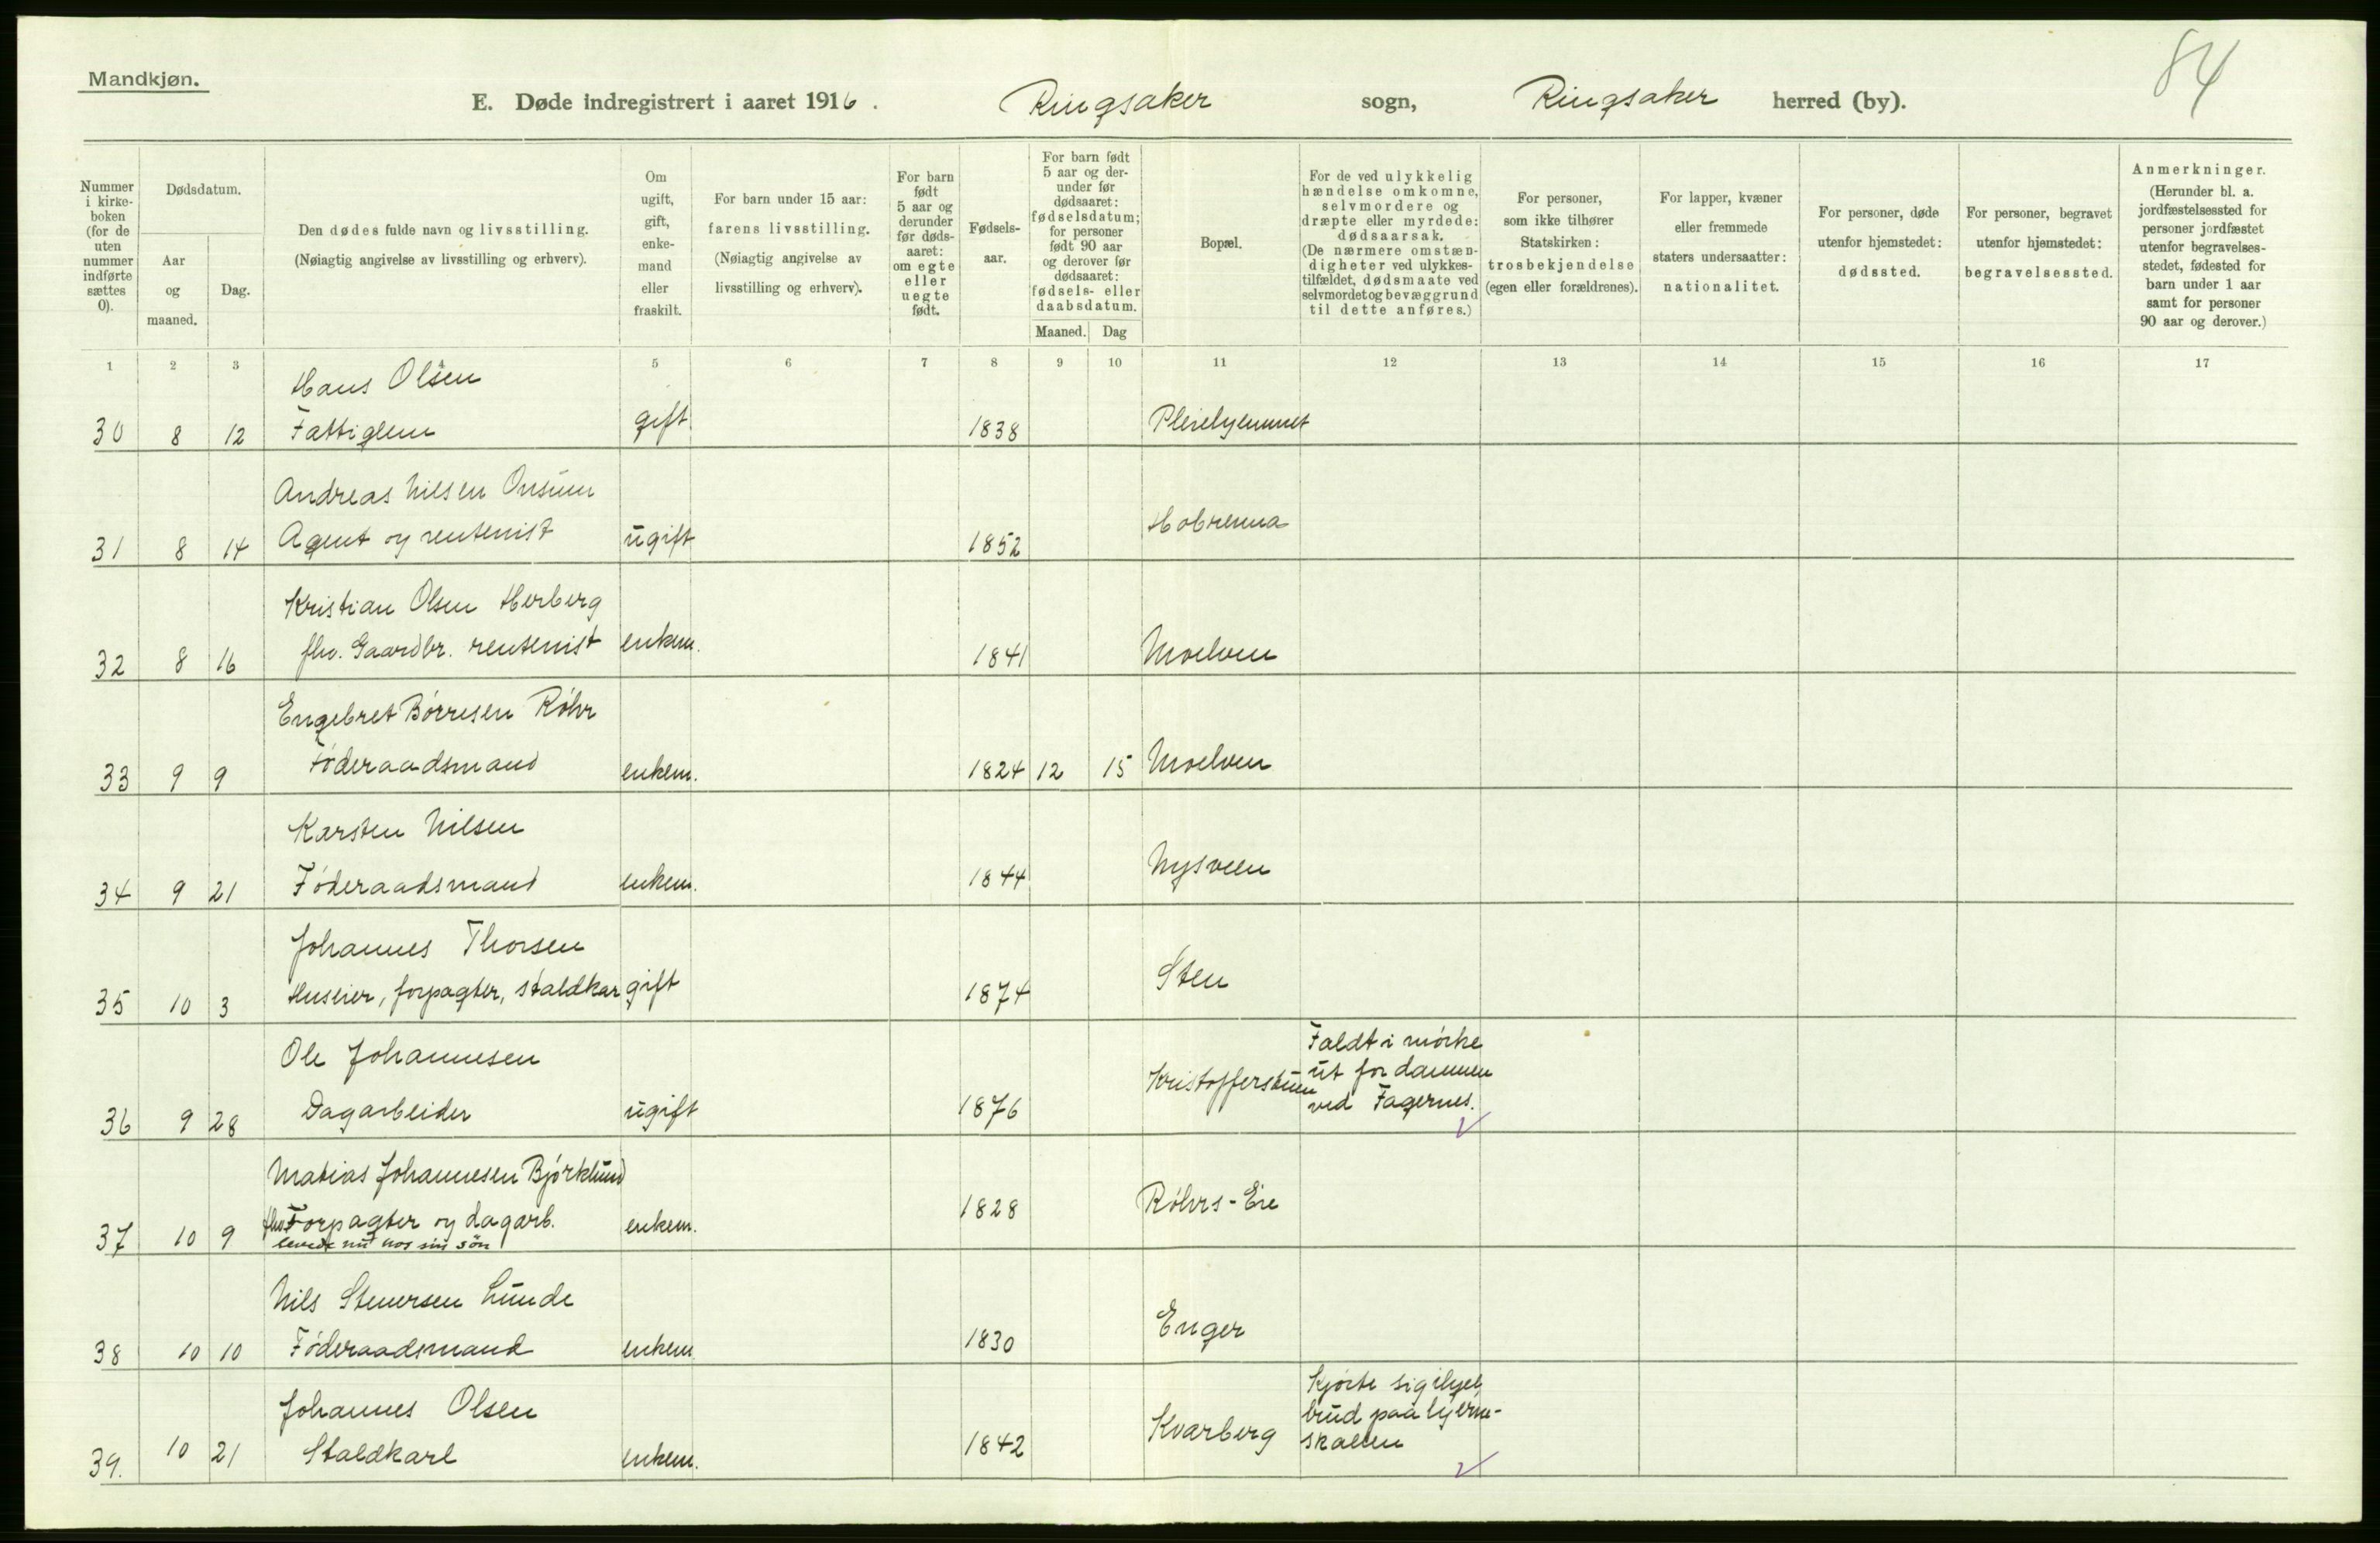 Mandkjøn.
E. Døde indregistrert i aaret 1916. Ringsaker sogn, Ringsaker herred (by).
84
Nummer i kirke-boken (for de uten nummer indførte sættes 0).
Dødsdatum.
Aar og maaned.
Dag.
Den dødes fulde navn og livsstilling.
(Nøiagtig angivelse av livsstilling og erhverv).
Om ugift, gift, enke-mand eller fraskilt.
For barn under 15 aar:
farens livsstilling.
(Nøiagtig angivelse av livsstilling og erhverv).
For barn født 5 aar og derunder før døds-aaret: om egte eller uegte født.
Fødsels-aar.
For barn født 5 aar og der-under før dødsaaret: fødselsdatum; for personer født 90 aar og derover før dødsaaret: fødsels- eller daabsdatum.
Maaned. Dag
Bopæl.
For de ved ulykkelig hændelse omkomne, selvmordere og dræpte eller myrdede: dødsaarsak.
(De nærmere omstæn-digheter ved ulykkes-tilfældet, dødsmaate ved selvmordet og bevæggrund til dette anføres.)
For personer, som ikke tilhører Statskirken: trosbekjendelse (egen eller forældrenes).
For lapper, kvæner eller fremmede staters undersaatter: nationalitet.
For personer, døde utenfor hjemstedet: dødssted.
For personer, begravet utenfor hjemstedet: begravelsessted.
Anmerkninger.
(Herunder bl. a. jordfæstelsessted for personer jordfæstet utenfor begravelses-stedet, fødested for barn under 1 aar samt for personer 90 aar og derover.)
1 2 3 5 6 7 8 9 10 11 12 13 14 15 16 17
Hans Olsen
30 8 12 Fattiglem gift 1838 Pleiehjemmet
Andreas Nilsen Onsum
31 8 14 Agent og rentenist ugift 1852 Hobrenna
Kristian Olsen Herberg
32 8 16 fhv. Gaardbr. rentenist enkem. 1841 Moelven
Engebret Börresen Röhr
33 9 9 Föderaadsmand enkem. 1824 12 15 Moelven
Karsten Nilsen
34 9 21 Föderaadsmand enkem. 1844 Nysveen
Johannes Thorsen
35 10 3 Huseier, forpagter, staldkar gift 1874 Sten
Ole Johannesen
36 9 28 Dagarbeider ugift 1876 Kristofferstuen
Faldt i mörke
ut for dammen
ved Fagernes.
Matias Johannesen Björklund
37 10 9 fhv Forpagter og dagarb. enkem. 1828 Röhrs-Eie
levede nu hos sin sön
Nils Stenersen Lunde
38 10 10 Föderaadsmand enkem 1830 Enger
Johannes Olsen
39. 10 21 Staldkarl enkem. 1842 Kvarberg
Kjörte sig ihjel
brud paa hjerne-
skallen